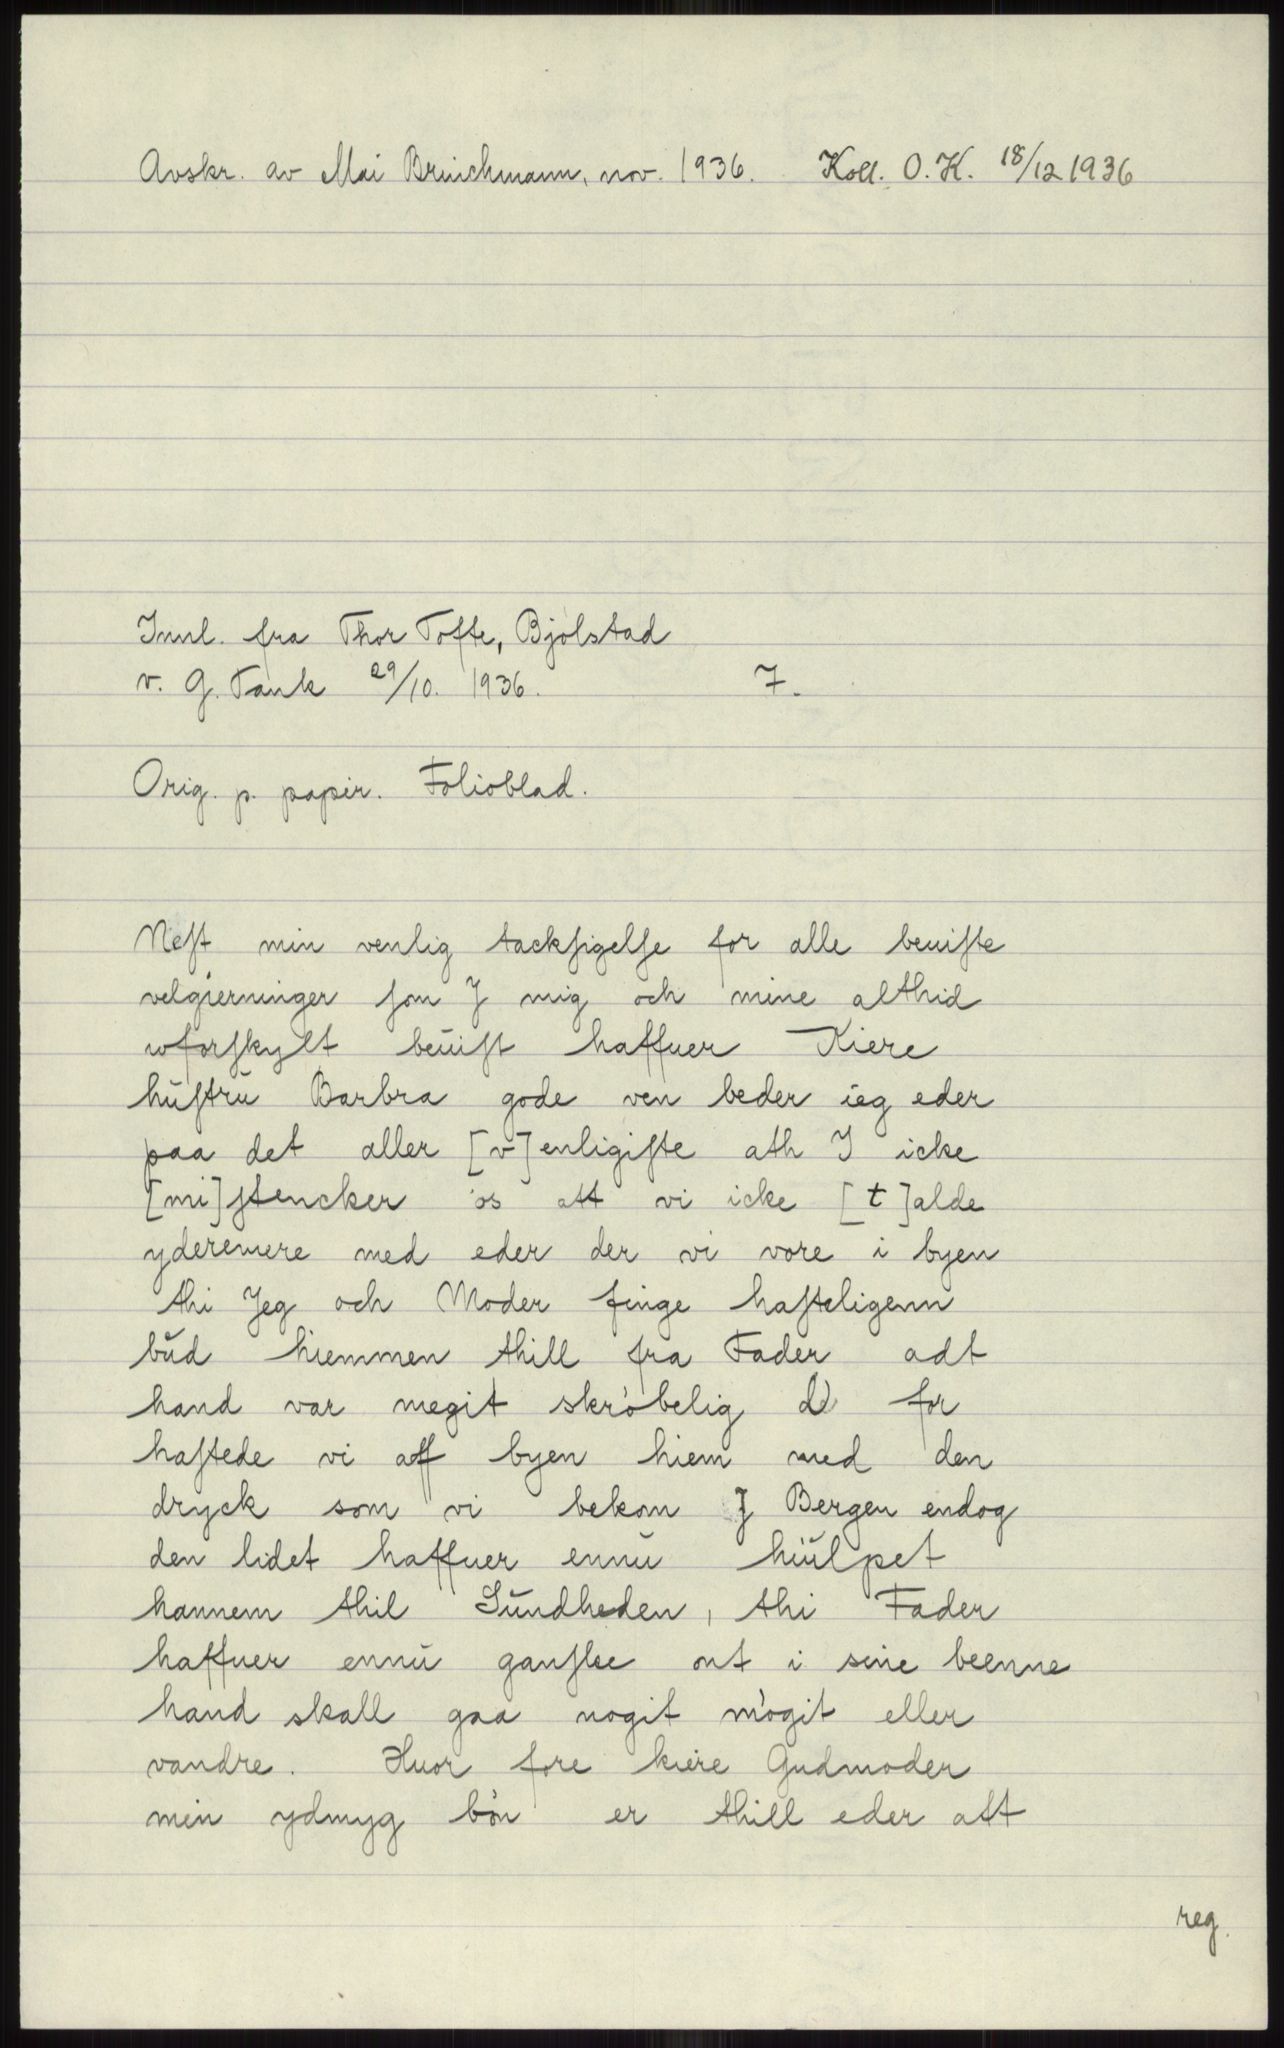 Avskr. av Mai Brinchmann, nov. 1936. Koll. O. K. 18/12 1936
Innl. fra Thor Tofte, Bjølstad
v. G. Tank 29/10. 1936. 7.
Orig. p. papir. Folioblad.
Neſt min venlig tackſigelſe for alle beuiſte
velgierninger ſom J mig och mine althid
wforſkylt beuiſt haffuer Kiere
huſtrŭ Barbra gode ven beder ieg eder
paa det aller [v]enligiſte ath J icke
[mi]ſtencker os att vi icke [t]alde
yderemere med eder der vi vore i byen
thi Jeg och Moder finge haſteligenn
bŭd hiemmen thill fra Fader adt
hand var megit skrøbelig d for
haſtede vi aff byen hiem med den
dryck som vi bekom J Bergen endog
den lidet haffuer ennŭ hiŭlpet
hannem thil Sŭndheden, thi Fader
haffuer ennŭ ganſke ont i sine beenne
hand skall gaa nogit møgit eller
vandre. Huor fore kiere Gudmoder
min ydmyg bøn er thill eder att
reg.